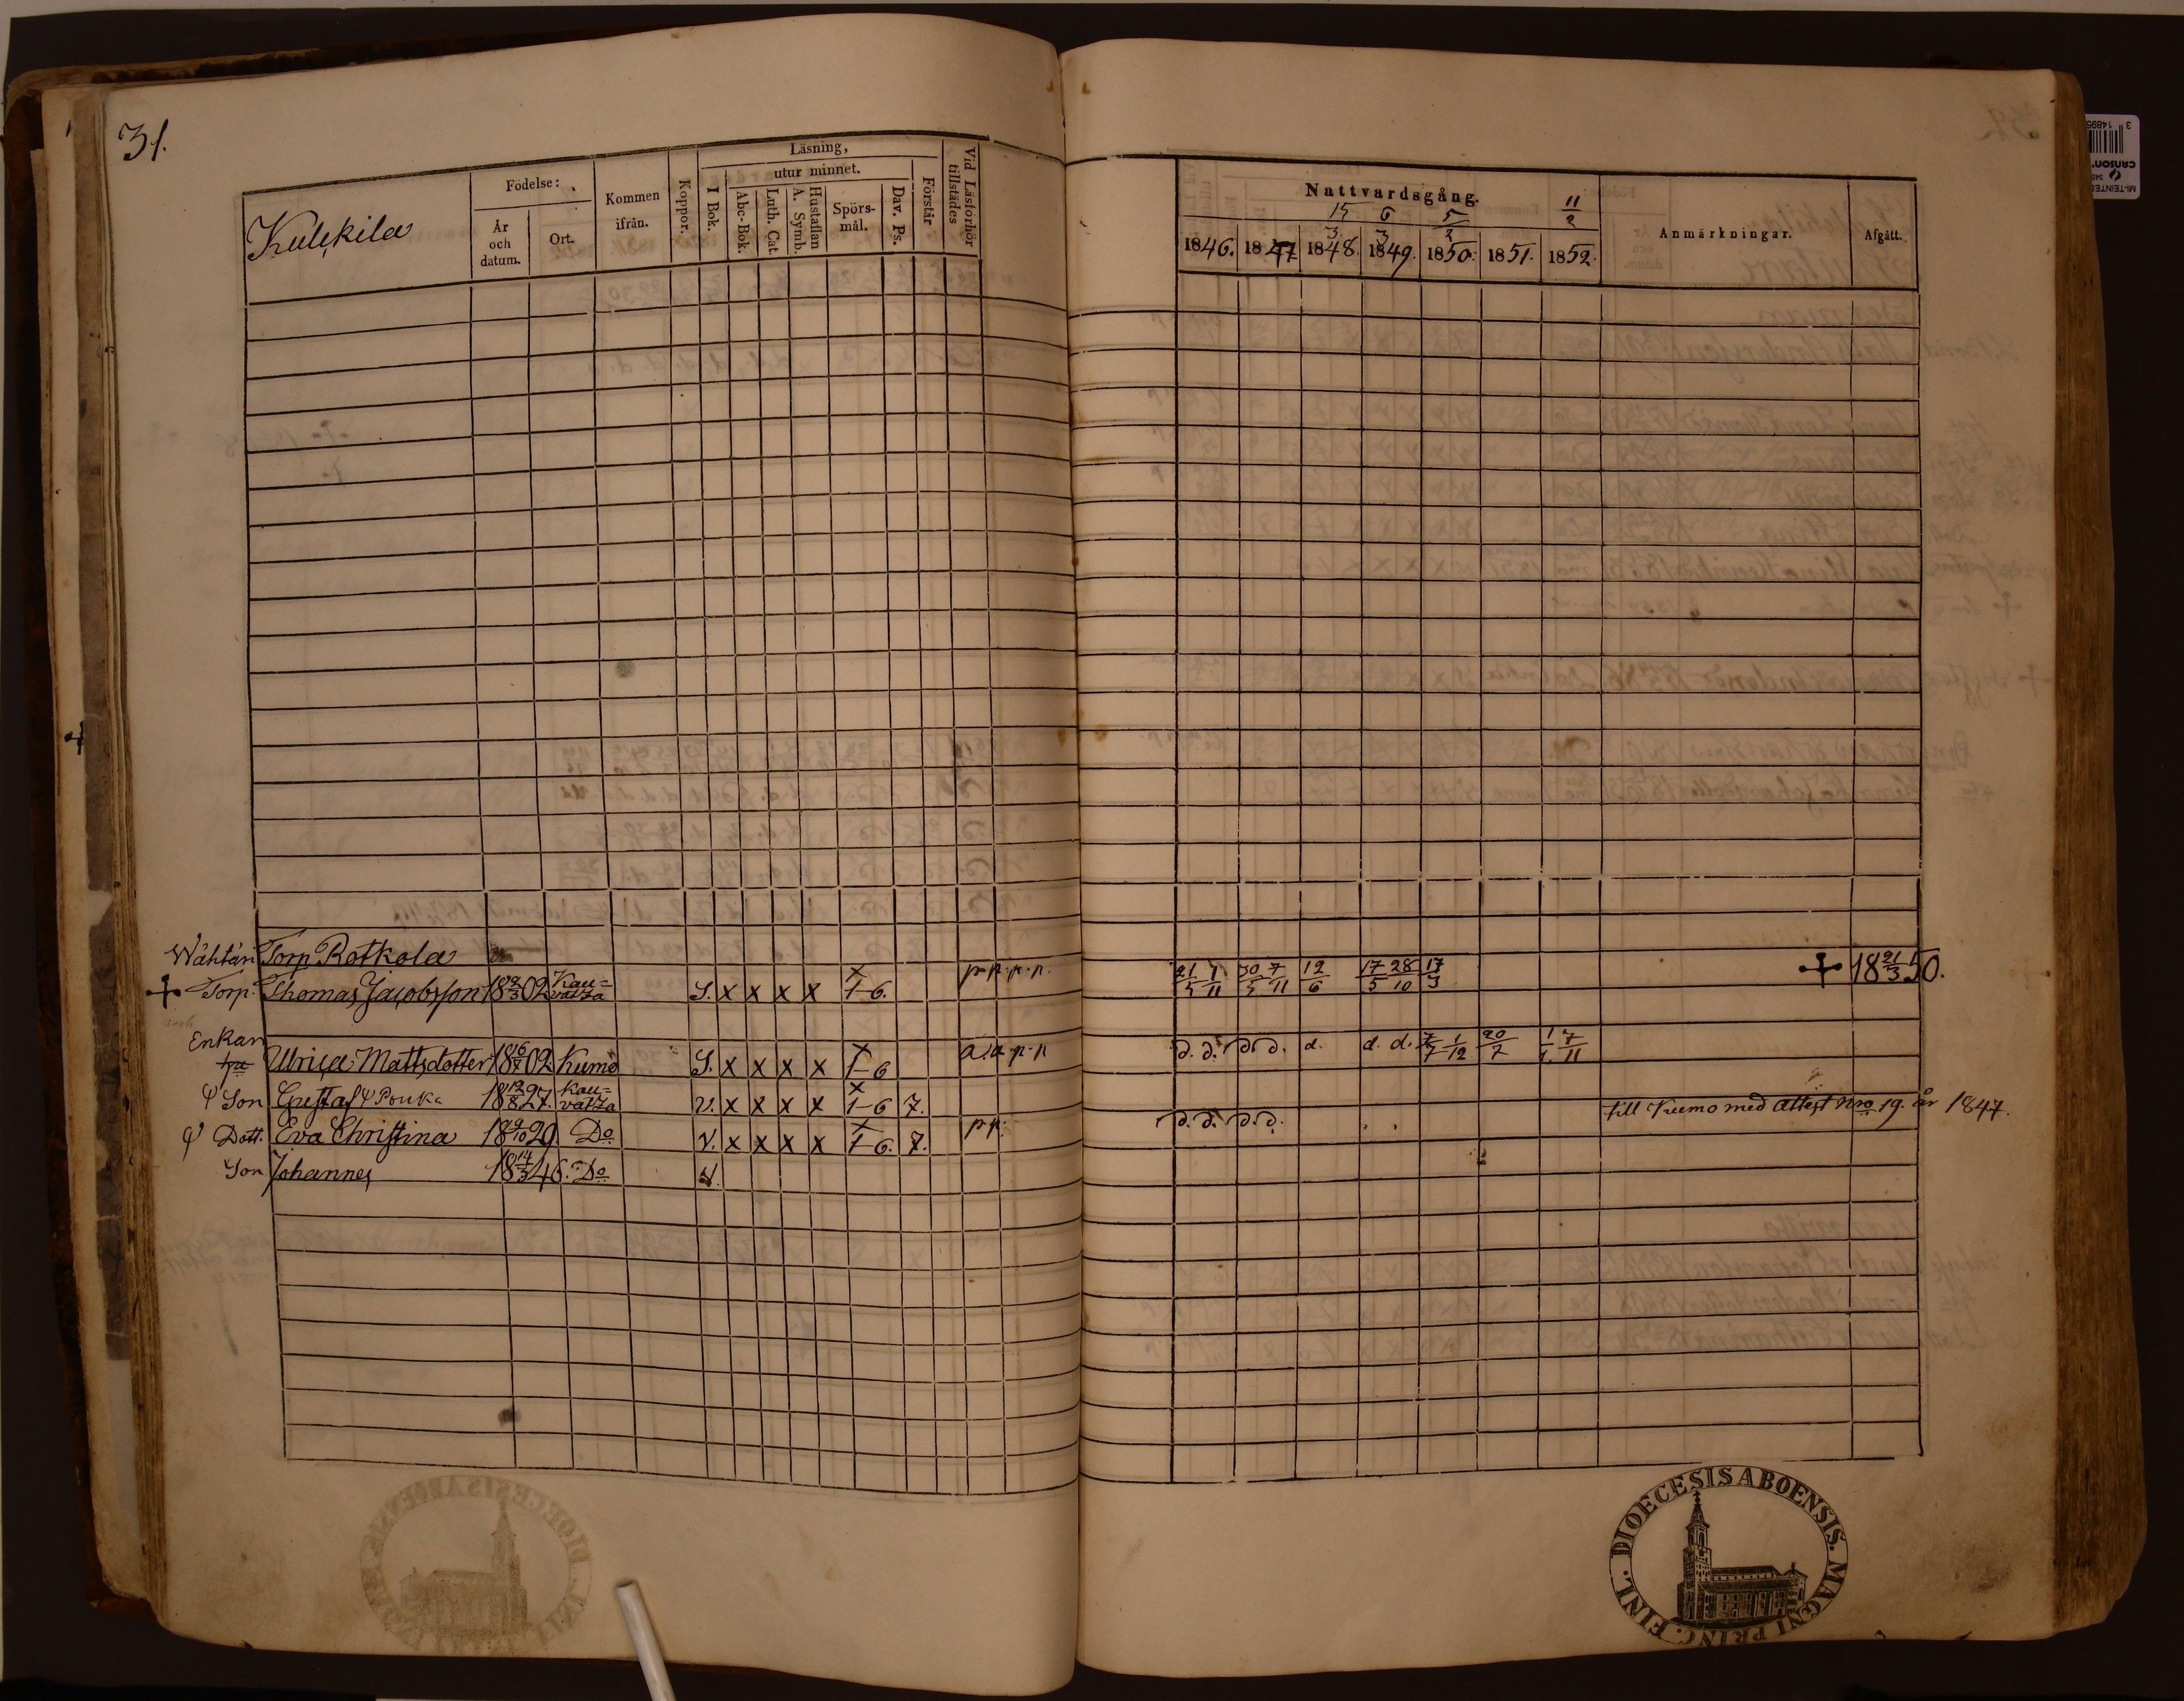 31.
Kulkila
Födelse:
År och datum.
Ort.
Kommen ifrån.
Koppor.
Läsning,
I Bok.
utur minnet.
Abc-Bok.
Luth. Cat.
A. Symb.
Hustaflan
Spörsmål.
Dav. Ps.
Förstår
Vid Läsförhör tillstädes
Nattvardsgång.
15/3 6/3 5/2 11/2
1846. 1847 1848. 1849. 1850. 1851. 1852.
Anmärkningar.
Afgått.
Wähtäri Torp Rotkola
+ Torp. Thomas Jacobsson 18 2/3 02 Kauvatza S. x x x x x 1-6. p.p.p.p. 21/5 1/11 30/5 7/11 12/6 17/5 28/10 17/3 + 18 21/3 50.
Enkan
hu Ulrica Mattsdotter 18 16/7 02 Kumo S. x x x x x 1-6 a.a.p.p d. d. d. d. d. d. d. 7/7 1/12 20/7 1/1 7/11
Son Gustaf Pouka 18 12/8 27. Kauvatza v. x x x x x 1-6 7. till Kumo med attest Nro 19. år 1847.
Dott. Eva Christina 18 9/10 29. Do v. x x x x x 1-6. 7. p p. d. d. d. d.
Son Johannes 18 14/3 46. Do
DIOECESIS ABOENSIS. MAGNI PRINC. FINL.